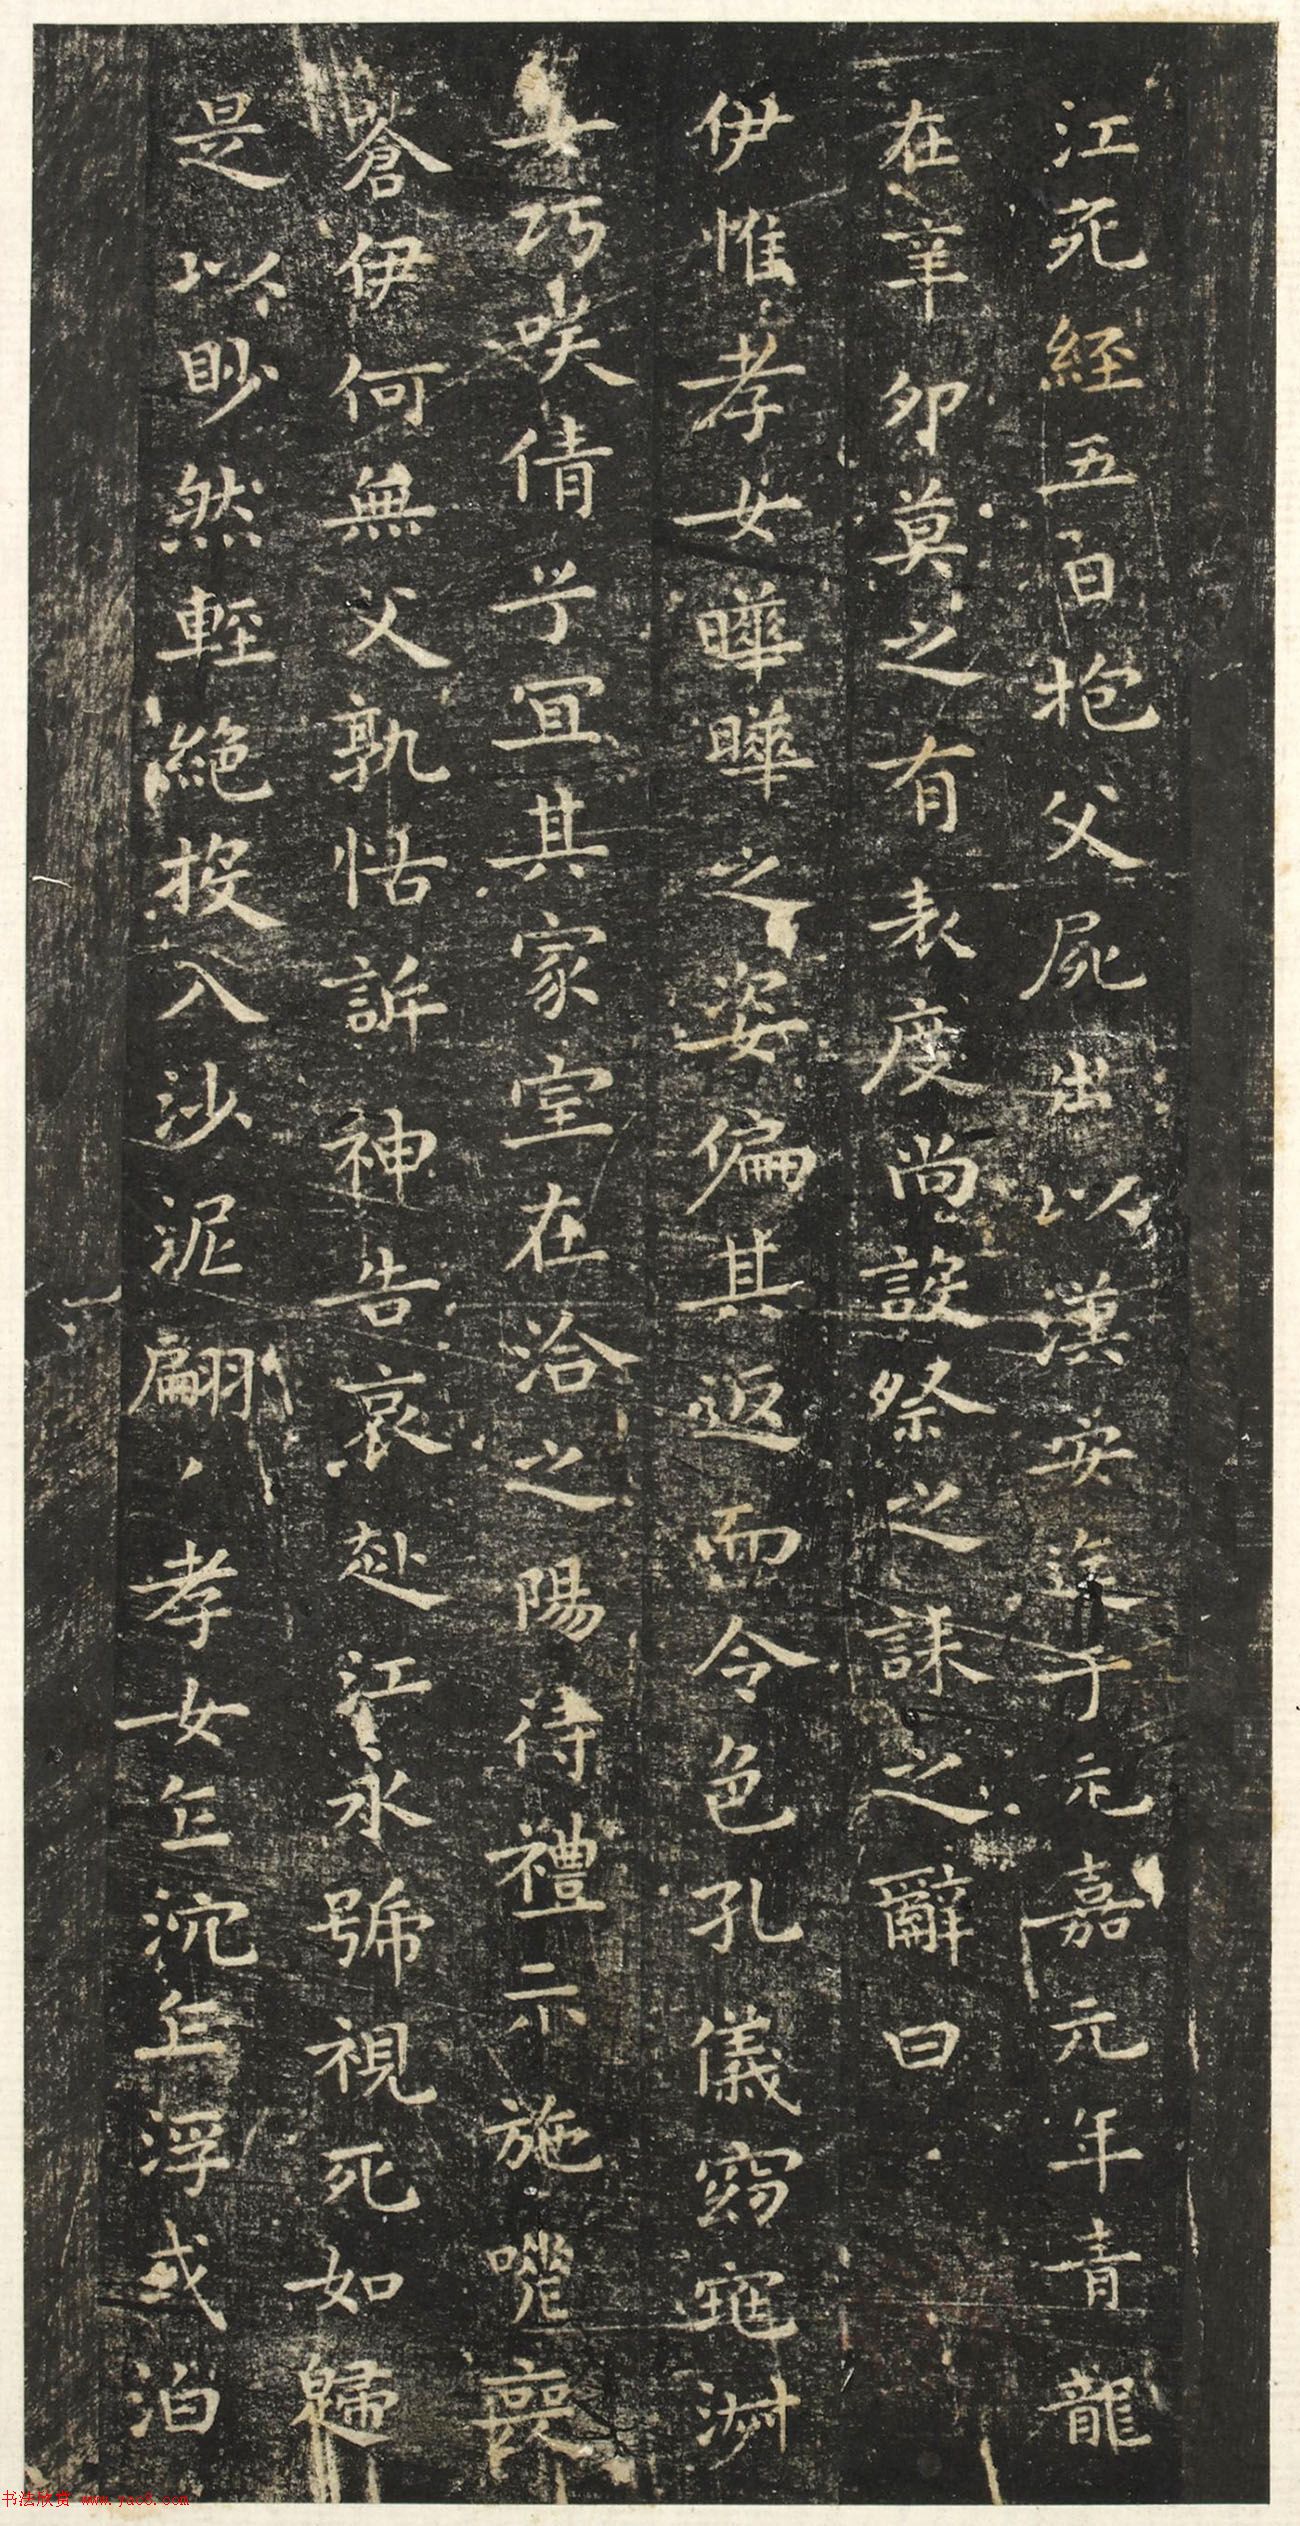 江死經五日抱父屍出以漢安迄于元嘉元年青龍
在辛卯莫之有表度尚設祭之誄之辭曰
伊惟孝女曄曄之姿偏其返而令色孔儀窈窕淑
女巧咲倩兮宜其家室在洽之陽待禮未施嗟喪
蒼伊何無父孰怙訴神告哀赴江永號視死如歸
是以眇然輕絕投入沙泥翩、孝女乍沉乍浮或泊
书法欣赏 www.yac8.com